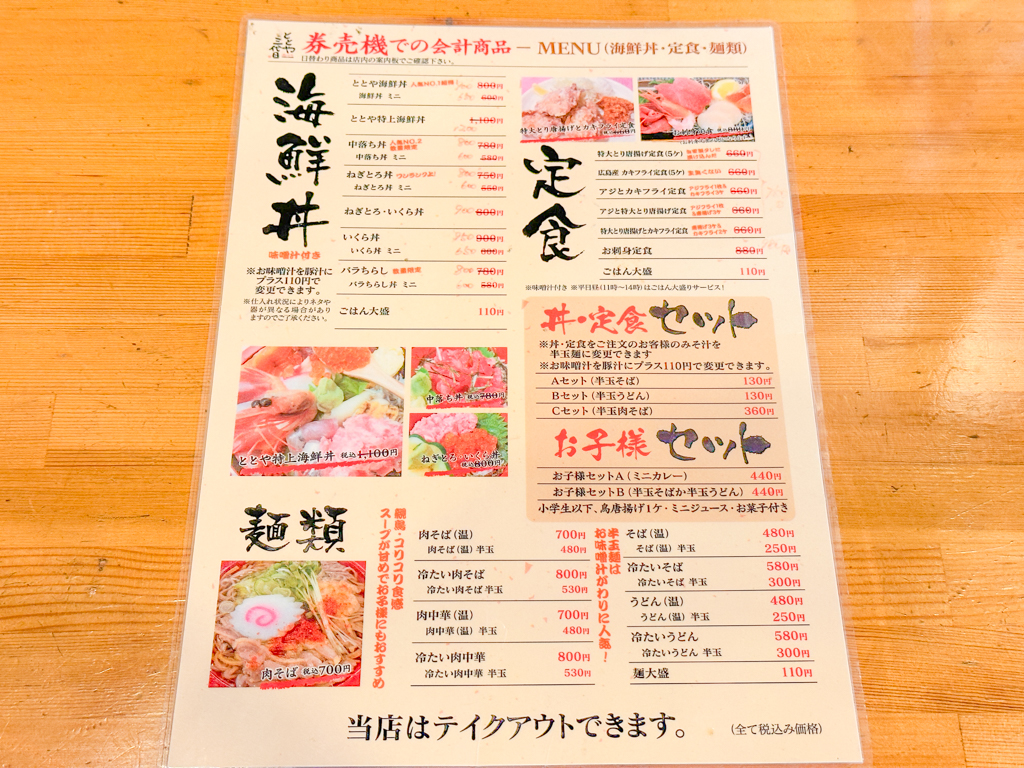 ととや
券売機での会計商品 − MENU（海鮮丼・定食・麺類）
日替わり商品は店内の案内板でご確認下さい。
海鮮丼
味噌汁付き
※お味噌汁を豚汁に
プラス110円で
変更できます。
※仕入れ状況によりネタや
器が異なる場合があり
ますのでご了承ください。
ととや海鮮丼 人気NO.1 800円
海鮮丼 ミニ 600円
ととや特上海鮮丼 1,100円
中落ち丼 人気NO.2 数量限定 780円
中落ち丼 ミニ 580円
ねぎとろ丼 ワンランク上! 750円
ねぎとろ丼 ミニ 550円
ねぎとろ・いくら丼 800円
いくら丼 900円
いくら丼 ミニ
バラちらし 数量限定 780円
バラちらし丼 ミニ 580円
ごはん大盛 110円
特大とり唐揚げとカキフライ定食
税込660円
お刺身定食
定食
特大とり唐揚げ定食（5ケ） 660円
広島産 カキフライ定食 660円
アジとカキフライ定食 660円
アジと特大とり唐揚げ定食 660円
特大とり唐揚げとカキフライ定食 660円
お刺身定食 880円
ごはん大盛 110円
※味噌汁付き ※平日昼（11時〜14時）はごはん大盛りサービス！
丼・定食 セット
※丼・定食をご注文のお客様のみそ汁を
半玉麺に変更できます
※お味噌汁を豚汁にプラス110円で変更できます。
Aセット（半玉そば） 130円
Bセット（半玉うどん） 130円
Cセット（半玉肉そば） 360円
お子様 セット
お子様セットA（ミニカレー） 440円
お子様セットB（半玉そばか半玉うどん） 440円
小学生以下、鳥唐揚げ1ケ・ミニジュース・お菓子付き
ととや特上海鮮丼 税込1,100円
中落ち丼 税込780円
ねぎとろ・いくら丼
税込800円
麺類
肉そば 税込700円
親鳥・コリコリ食感
スープが甘めでお子様にもおすすめ
肉そば（温） 700円
肉そば（温）半玉 480円
冷たい肉そば 800円
冷たい肉そば 半玉 530円
肉中華（温） 700円
肉中華（温）半玉 480円
冷たい肉中華 800円
冷たい肉中華 半玉 530円
半玉麺は
お味噌汁がわりに人気！
そば（温） 480円
そば（温）半玉 250円
冷たいそば 580円
冷たいそば 半玉 300円
うどん（温） 480円
うどん（温）半玉 250円
冷たいうどん 580円
冷たいうどん 半玉 300円
麺大盛 110円
当店はテイクアウトできます。
（全て税込み価格）